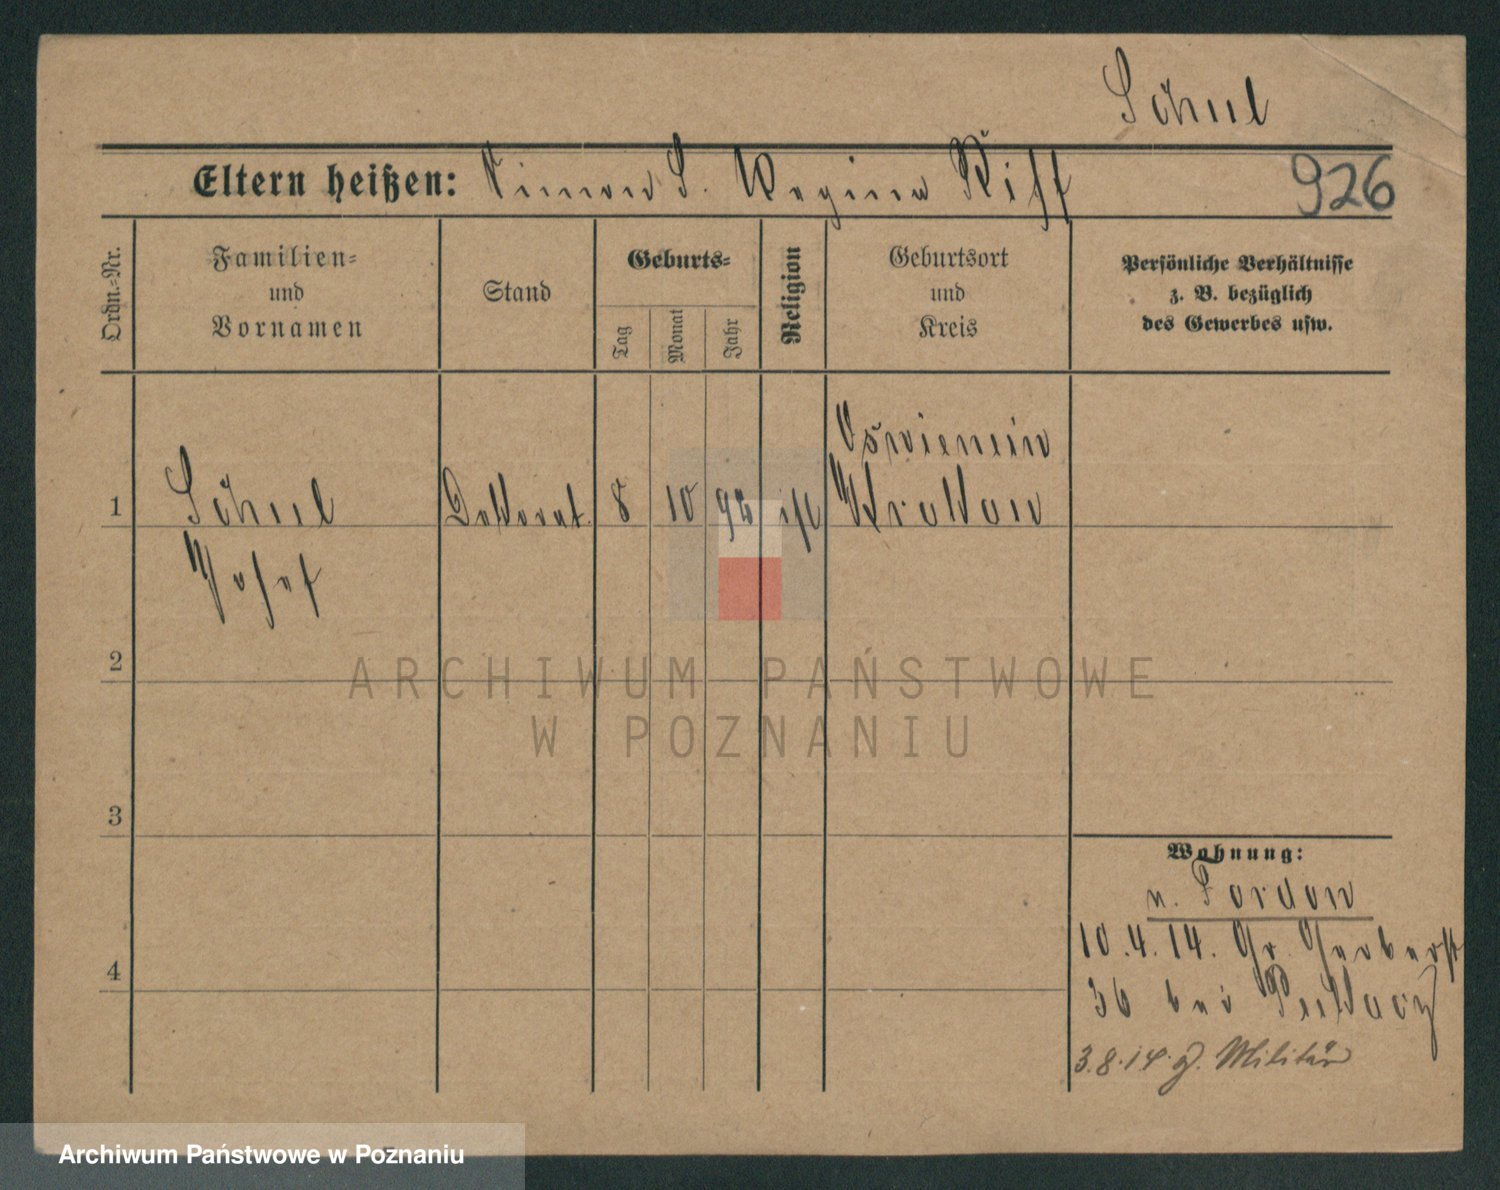 Schul
Eltern heißen: Simon S. Regina Riff
926
Ordn.-Nr.
Familien-
und
Vornamen
Stand
Geburts-
Tag
Monat
Jahr
Religion
Geburtsort
und
Kreis
Persönliche Verhältnisse
z. B. bezüglich
des Gewerbes usw.
1
Schul
Josef
Dekorat.
8
10
92
isr
Krakau
2
3
4
Wohnung:
v. Fordon
10.4.14. Gr. Gerberst
36 bei
3.8.14. z. Militär
ARCHIWUM PAŃSTWOWE
W POZNANIU
Archiwum Państwowe w Poznaniu